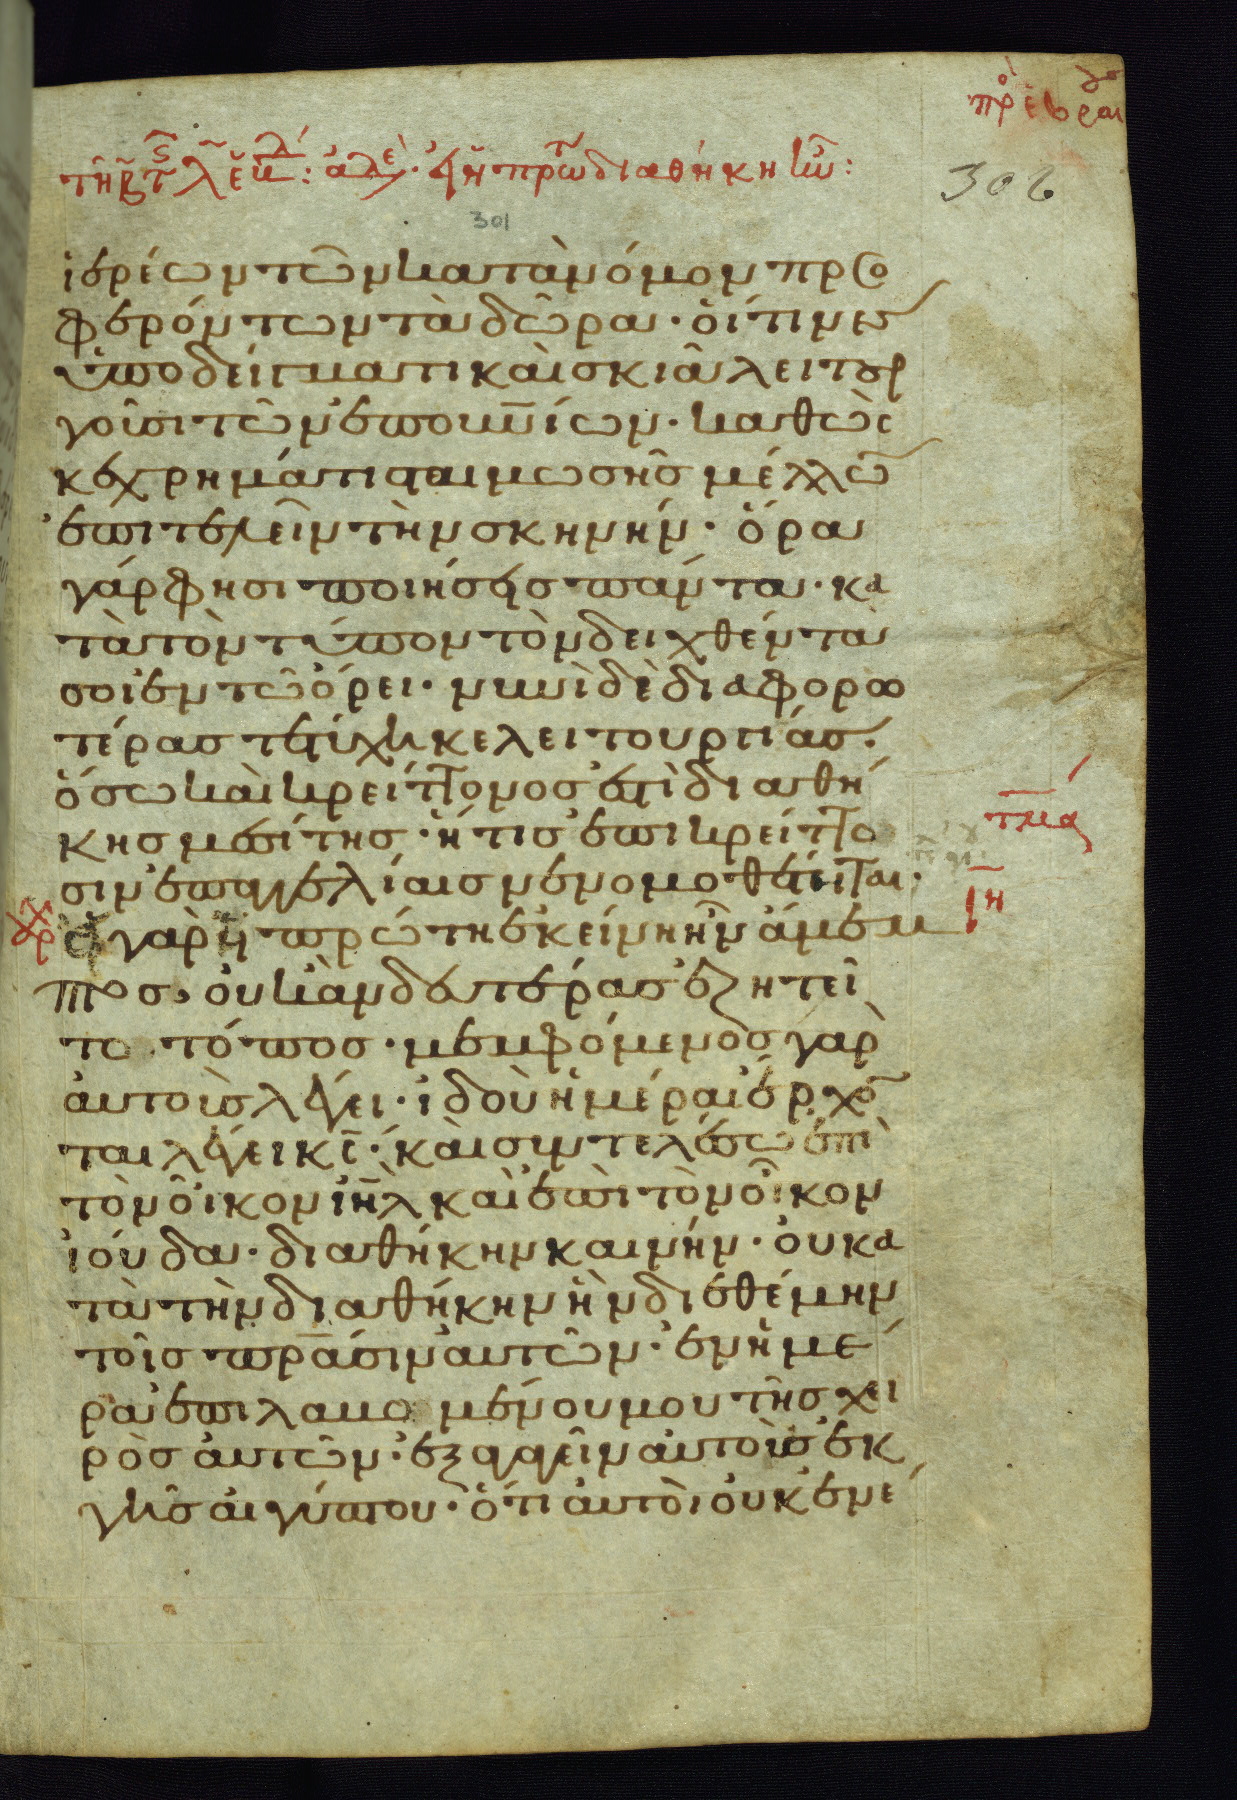 πρ ἑβραι
302
301
ἱερέων τῶν κατὰ νόμον προσ
φερόντων τὰ δῶρα· οἵτινες
ὑποδείγματι καὶ σκιᾶ λειτουρ
γοῦσι τῶν ἐπουνίων· καθὼς
κεχρημάτισται μωσῆς μέλλω
ἐπιτελεῖν τὴν σκηνήν· ὅρα
γάρ φησι ποιήσεις πάντα· κα
τὰ τὸν τύπον τὸν δειχθέντα
σοι ἐν τῶ ὄρει· νυνὶ δὲ διαφορω
τέρας τέτύχηκε λειτουργίας·
ὅσω καὶ κρείττονος ἐστὶ διαθή
κης μεσίτης· ἥτις ἐπὶ κρείττο
σιν ἐπαγγελίαις νενομοθέτηται·
εἰ γὰρ ἡ πρώτη ἐκείνη ἦν ἄμεμ
πτος, οὐκ ἂν δευτέρας ἐζητεῖ
το τόπος· μεμφόμενος γὰρ
αὐτοὺς λέγει· ἰδοὺ ἡμέραι ἔρχο
ται λέγει κς· καὶ συντελέσω ἐπὶ
τὸν οἶκον ιηλ καὶ ἐπὶ τὸν οἶκον
ἰούδα· διαθήκην καινήν· οὐ κα
τὰ τὴν διαθήκην ἣν διεθέμην
τοῖς πράσιν αὐτῶν· ἐν ἡμέ
ρα ἐπιλαμομένου μου τῆς χει
ρὸς αὐτῶν· ἐξαγαγεῖν αὐτοὺς ἐκ
γῆς αἰγύπτου· ὅτι αὐτοὶ οὐκ ἐνέ